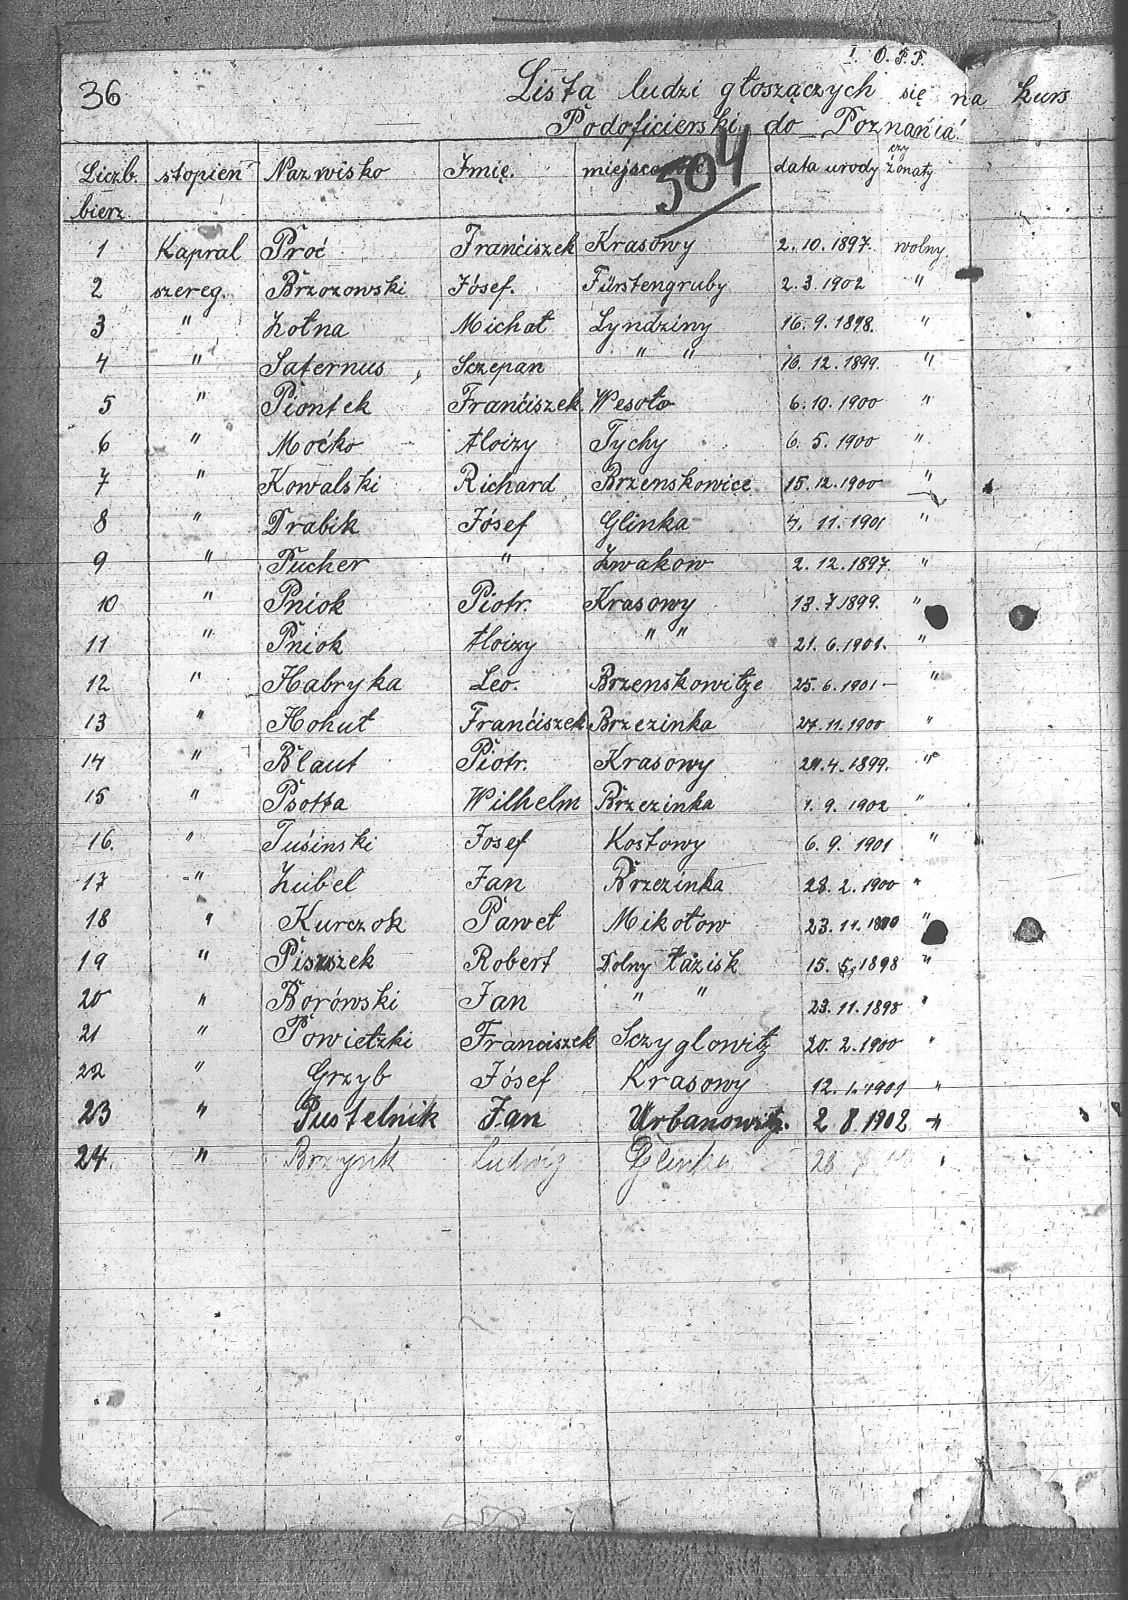 I. O.F.F.
36
Lista ludzi głoszączych się na kurs
Podoficierski do Poznańia
504
Liczb. bierz. stopień Nazwisko Imię. data urody czy żonaty
1 Kapral Proć Frańciszek Krasowy 2.10.1897. wolny
2 szereg. Brzozowski Jósef. Fürstengruby 2.3.1902 "
3 " Żołna Michał Lyndziny 16.9.1898. "
4 " Saternus, Sczepan " " 16.12.1899. "
5 " Piontek Frańciszek Wesoło 6.10.1900 "
6 " Moćko Aloizy Tychy 6.5.1900 "
7 " Kowalski Richard Brzenskowice 15.12.1900 "
8 " Drabik Jósef Glinka 4.11.1901 "
9 " Pucher " Zwakow 2.12.1897. "
10 " Pniok Piotr. Krasowy 13.7.1899. "
11 " Pniok Aloizy " " 21.6.1901. "
12 " Habryka Leo. Brzenskowitze 25.6.1901- "
13 " Hohut Frańciszek Brzezinka 27.11.1900 "
14 " Blaut Piotr. Krasowy .4.1899. "
15 " Psotta Wilhelm Brzezinka 1.9.1902 "
16. " Tuśinski Josef Kostowy 6.9.1901 "
17 -" Lubel Jan Brzezinka 28.2.1900 "
18 " Kurczok Paweł Mikołow 23.11. "
19 " Robert Dolny Łazisk 15. 1898 "
20 " Borówski Jan " " 23.11.1898 "
21 " Powietzki Franciszek Sczyglowitz 20.2.1900 "
22 " Grzyb Jósef Krasowy 12.1.1901 "
23 " Pustelnik Jan Urbanowitz. 2 8.1902 "
24. " Brzynk Ludwig Glinka 28 "